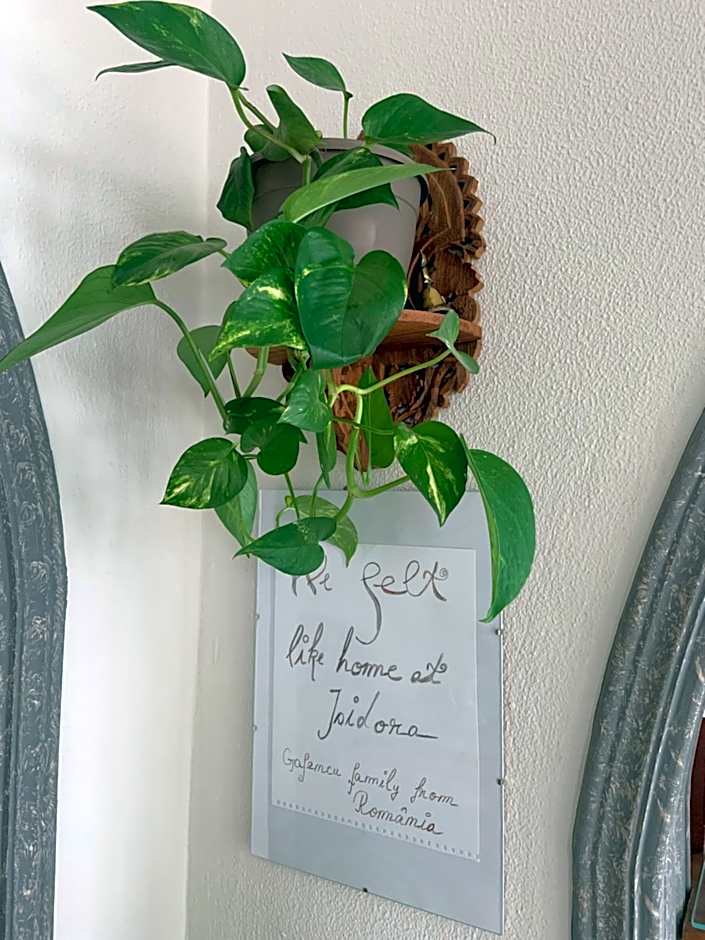 We felt
like home at
Isidora
family from
România